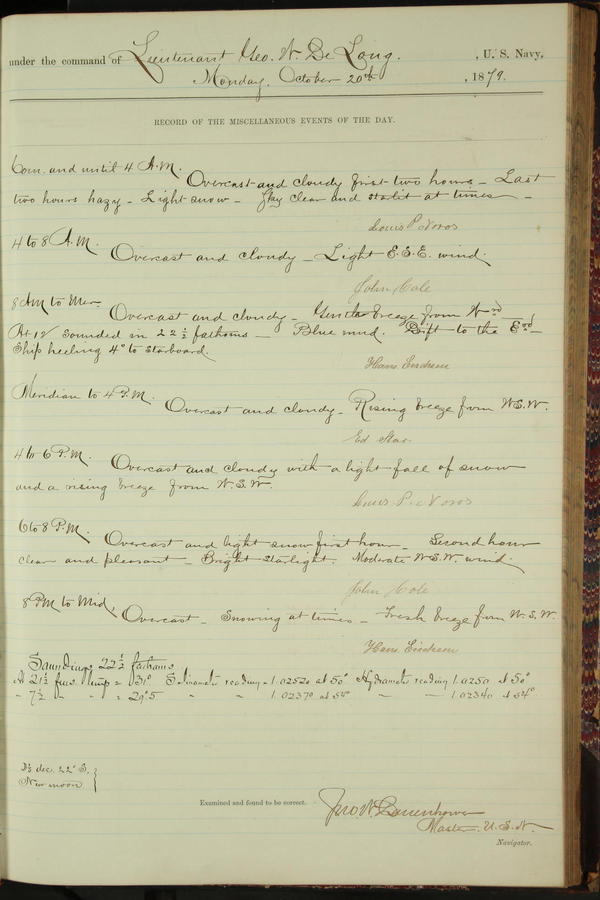 under the command of Lieutenant Geo. W. De Long. , U. S. Navy,
Monday, October 20th , 1879.
RECORD OF THE MISCELLANEOUS EVENTS OF THE DAY.
Com. and until 4 A.M.
Overcast and cloudy first two hours – Last
two hours hazy – Light snow – Sky clear and starlit at times –
Louis P. Noros
4 to 8 A.M.
Overcast and cloudy – Light E.S.E. wind.
John Cole
8 AM to Mer.
Overcast and cloudy – Gentle breeze from Wrd –
At 12 sounded in 22 ½ fathoms – Blue mud. Drift to the Erd –
Ship heeling 4° to starboard.
Hans Erichsen
Meridian to 4 P.M.
Overcast and cloudy – Rising breeze from W.S.W.
Ed Star
4 to 6 P.M.
Overcast and cloudy with a light fall of snow
and a rising breeze from W.S.W.
Louis P. Noros
6 to 8 P.M.
Overcast and light snow first hour – Second hour
clear and pleasant – Bright starlight. Moderate W.S.W. wind.
John Cole
8 PM to Mid,
Overcast – Snowing at times – Fresh breeze from W.S.W.
Hans Erichsen
Soundings 22 ½ fathoms
At 21½ fms temp = 31° Salinometer reading – 1.02520 at 50° Hydrometer reading 1.0250 at 50°
" 7½ " " = 29°.5 " – 1.02370 at 54° " – 1.02340 at 54°
dec. 22° S.
New moon
Examined and found to be correct.
Jno W. Danenhower
Master U.S.N.
Navigator.